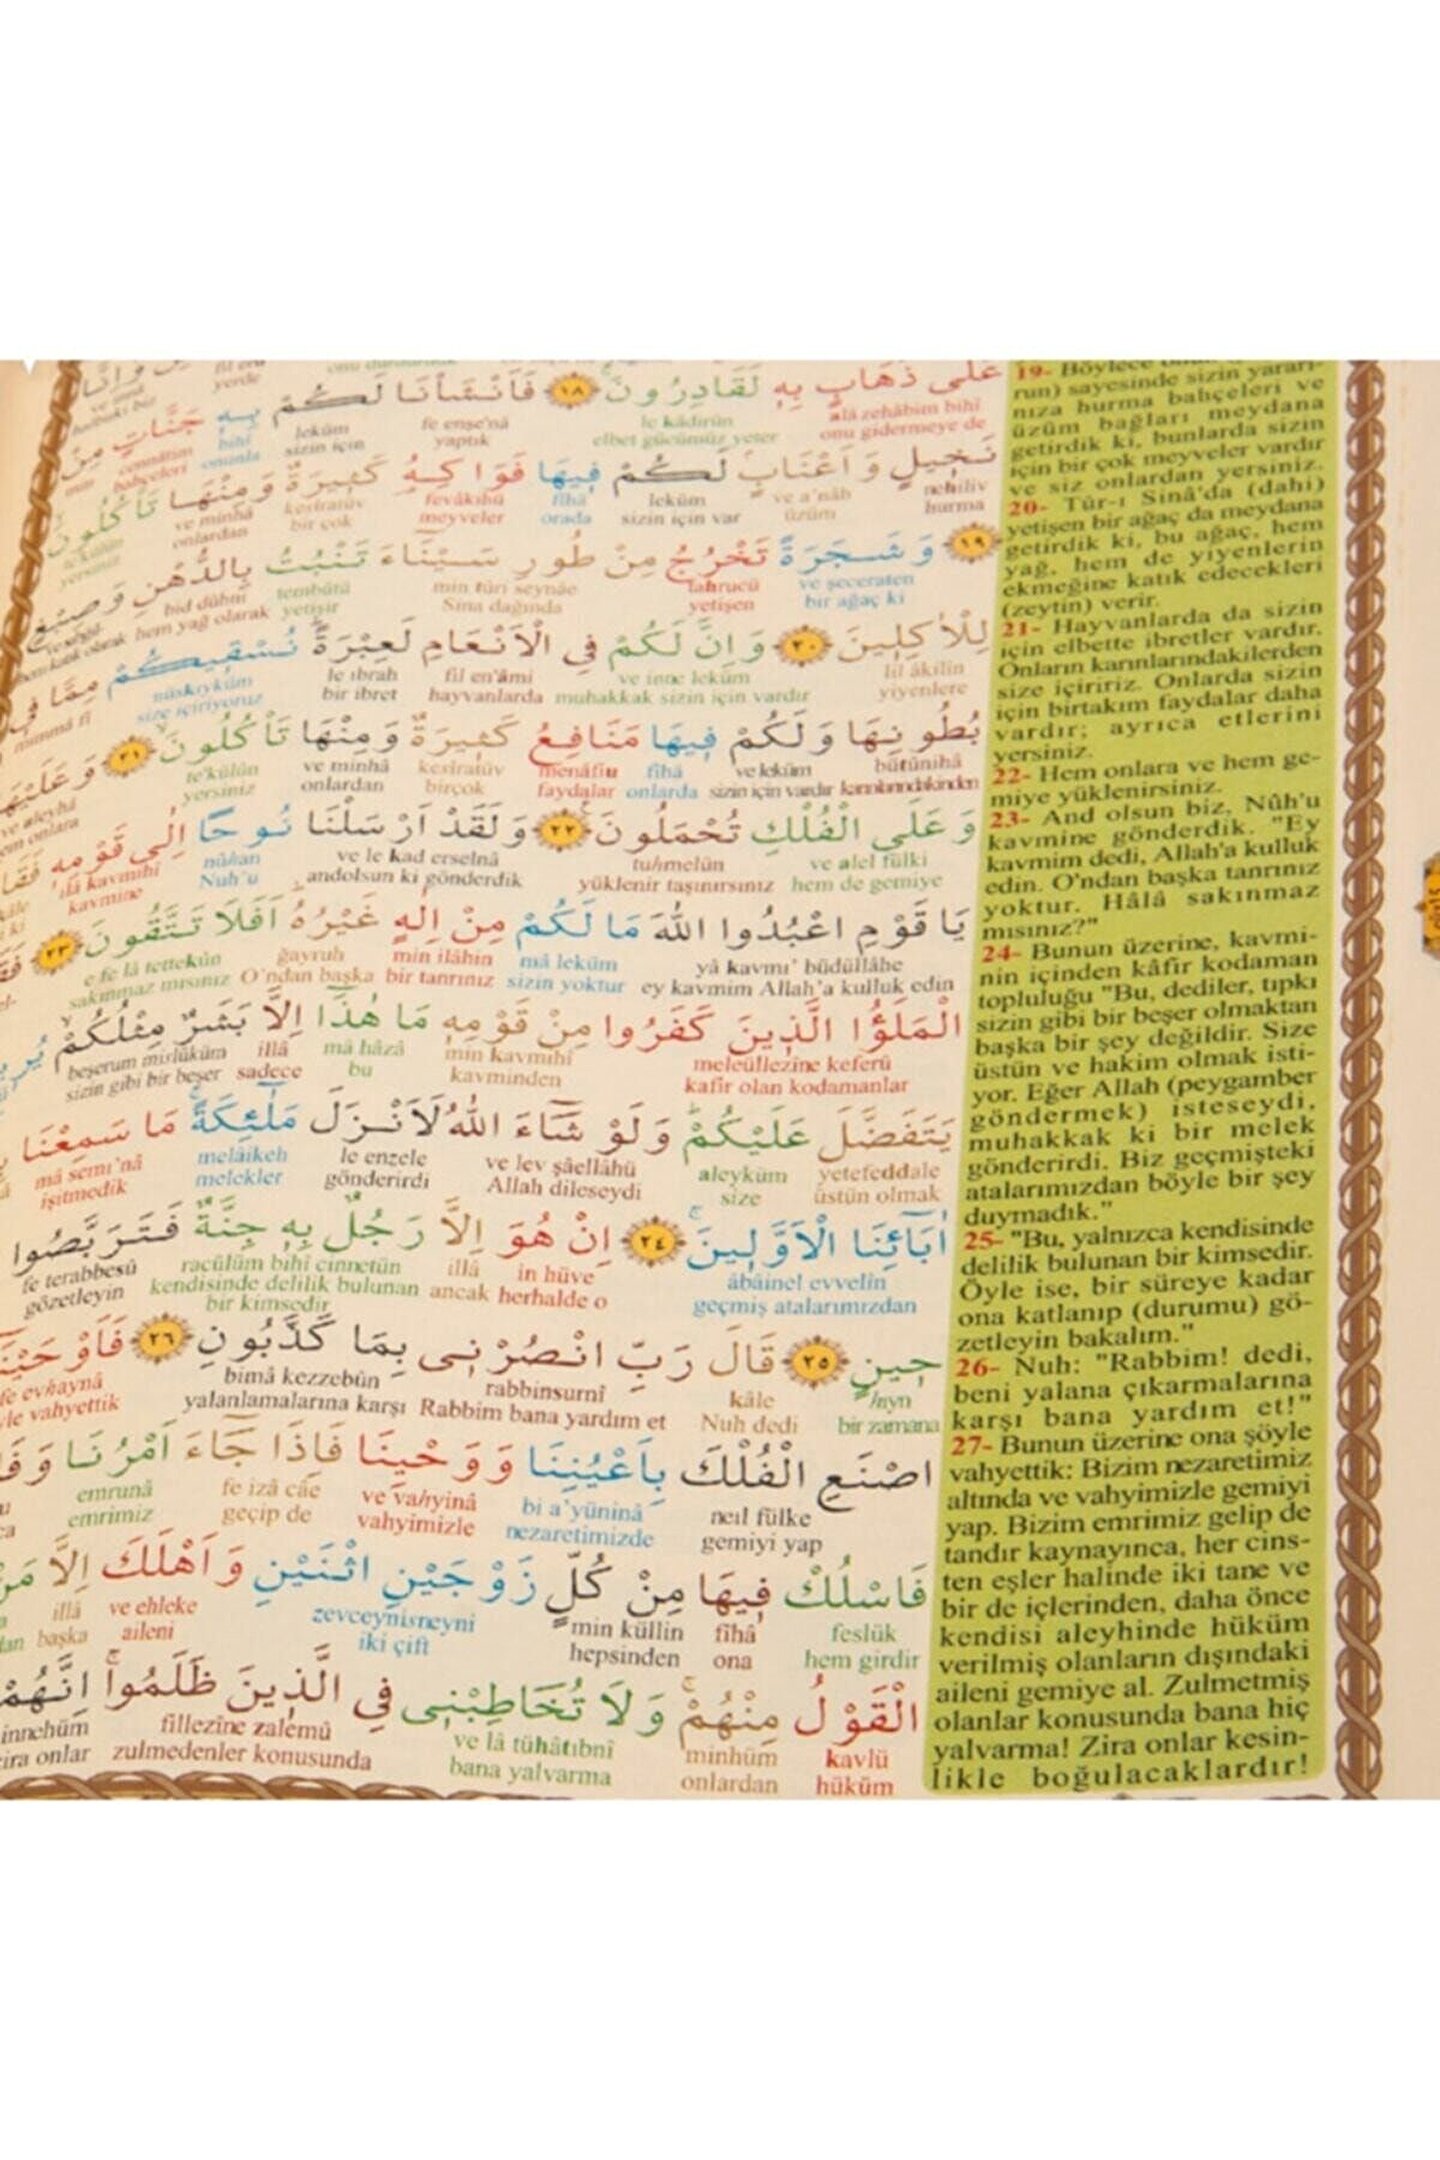 عَلٰى ذَهَابٍ بِهِ لَقَادِرُونَ ١٨ فَاَنْشَأْنَا لَكُمْ بِهِ جَنَّاتٍ مِنْ
leküm fe enşe'nâ le kâdirûn alâ zehâbim bihî
sizin için yaptık elbet gücümüz yeter onu gidermeye de
نَخِيلٍ وَ اَعْنَابٍ لَكُمْ فِيهَا فَوَاكِهُ كَثِيرَةٌ وَمِنْهَا تَأْكُلُونَ
ve minhâ kesîratüv fevâkihü fîhâ leküm ve a'nâb nehîliv
onlardan bir çok meyveler orada sizin için var üzüm hurma
١٩ وَ شَجَرَةً تَخْرُجُ مِنْ طُورِ سَيْنَاءَ تَنْبُتُ بِالدُّهْنِ وَصِبْغٍ
bid dühni tembütü min tûri seynâe tahrucü ve şeceraten
hem yağ olarak yetişir Sina dağında yetişen bir ağaç ki
لِلْاٰكِلِينَ ٢٠ وَ اِنَّ لَكُمْ فِي الْاَنْعَامِ لَعِبْرَةً نُسْقِيكُمْ مِمَّا فِي
nüskıyküm le ıbrah fil en'âmi ve inne leküm lil âkilîn
size içiriyoruz bir ibret hayvanlarda muhakkak sizin için vardır yiyenlere
بُطُونِهَا وَلَكُمْ فِيهَا مَنَافِعُ كَثِيرَةٌ وَمِنْهَا تَأْكُلُونَ ٢١ وَ عَلَيْهَا
ve aleyhâ te'külûn ve minhâ kesîratüv menâfiu fîhâ ve leküm bütûnihâ
yersiniz onlardan birçok faydalar onlarda sizin için vardır karınlarındakinden
وَ عَلَى الْفُلْكِ تُحْمَلُونَ ٢٢ وَلَقَدْ اَرْسَلْنَا نُوحًا اِلٰى قَوْمِهِ
ilâ kavmihî nûhan ve le kad erselnâ tuhmelûn ve alel fülki
kavmine Nuh'u andolsun ki gönderdik yüklenir taşınırsınız hem de gemiye
يَا قَوْمِ اعْبُدُوا اللّٰهَ مَا لَكُمْ مِنْ اِلٰهٍ غَيْرُهُ اَفَلَا تَتَّقُونَ ٢٣
e fe lâ tettekûn ğayruh min ilâhin mâ leküm yâ kavmı' büdüllâhe
sakınmaz mısınız O'ndan başka bir tanrınız sizin yoktur ey kavmim Allah'a kulluk edin
الْمَلَؤُا الَّذِينَ كَفَرُوا مِنْ قَوْمِهِ مَا هٰذَا اِلَّا بَشَرٌ مِثْلُكُمْ
beşerum mislüküm illâ mâ hâzâ min kavmihî meleüllezîne keferû
sizin gibi bir beşer sadece bu kavminden kafir olan kodamanlar
يَتَفَضَّلَ عَلَيْكُمْ وَلَوْ شَاءَ اللّٰهُ لَاَنْزَلَ مَلٰئِكَةً مَا سَمِعْنَا
mâ semı'nâ melâikeh le enzele ve lev şâellâhü aleyküm yetefeddale
işitmedik melekler gönderirdi Allah dileseydi size üstün olmak
اٰبَائِنَا الْاَوَّلِينَ ٢٤ اِنْ هُوَ اِلَّا رَجُلٌ بِهِ جِنَّةٌ فَتَرَبَّصُوا
fe terabbesû racülüm bihî cinnetün illâ in hüve âbâinel evvelîn
gözetleyin kendisinde delilik bulunan bir kimsedir ancak herhalde o geçmiş atalarımızdan
حِينٍ ٢٥ قَالَ رَبِّ انْصُرْنِي بِمَا كَذَّبُونِ ٢٦
fe evhaynâ bimâ kezzebûn rabbinsurnî kâle hıyn
yalanlamalarına karşı Rabbim bana yardım et Nuh dedi bir zamana
اصْنَعِ الْفُلْكَ بِاَعْيُنِنَا وَوَحْيِنَا فَاِذَا جَاءَ اَمْرُنَا
emrunâ fe izâ câe ve vahyinâ bi a'yüninâ neıl fülke
emrimiz geçip de vahyimizle nezaretimizde gemiyi yap
فَاسْلُكْ فِيهَا مِنْ كُلٍّ زَوْجَيْنِ اثْنَيْنِ وَاَهْلَكَ اِلَّا
illâ ve ehleke zevceynisneyni min küllin fîhâ feslük
başka aileni iki çift hepsinden ona hem girdir
الْقَوْلُ مِنْهُمْ وَلَا تُخَاطِبْنِي فِي الَّذِينَ ظَلَمُوا اِنَّهُمْ
innehüm fillezîne zalemû ve lâ tühâtıbnî minhüm kavlü
onlar zulmedenler konusunda bana yalvarma onlardan hüküm
19- Böylece
run) sayesinde sizin yararı-
nıza hurma bahçeleri ve
üzüm bağları meydana
getirdik ki, bunlarda sizin
için bir çok meyveler vardır
ve siz onlardan yersiniz.
20- Tûr-ı Sinâ'da (dahi)
yetişen bir ağaç da meydana
getirdik ki, bu ağaç, hem
yağ, hem de yiyenlerin
ekmeğine katık edecekleri
(zeytin) verir.
21- Hayvanlarda da sizin
için elbette ibretler vardır.
Onların karınlarındakilerden
size içiririz. Onlarda sizin
için birtakım faydalar daha
vardır; ayrıca etlerini
yersiniz.
22- Hem onlara ve hem ge-
miye yüklenirsiniz.
23- And olsun biz, Nûh'u
kavmine gönderdik. "Ey
kavmim dedi, Allah'a kulluk
edin. O'ndan başka tanrınız
yoktur. Hâlâ sakınmaz
mısınız?"
24- Bunun üzerine, kavmi-
nin içinden kâfir kodaman
topluluğu "Bu, dediler, tıpkı
sizin gibi bir beşer olmaktan
başka bir şey değildir. Size
üstün ve hakim olmak isti-
yor. Eğer Allah (peygamber
göndermek) isteseydi,
muhakkak ki bir melek
gönderirdi. Biz geçmişteki
atalarımızdan böyle bir şey
duymadık."
25- "Bu, yalnızca kendisinde
delilik bulunan bir kimsedir.
Öyle ise, bir süreye kadar
ona katlanıp (durumu) gö-
zetleyin bakalım."
26- Nuh: "Rabbim! dedi,
beni yalana çıkarmalarına
karşı bana yardım et!"
27- Bunun üzerine ona şöyle
vahyettik: Bizim nezaretimiz
altında ve vahyimizle gemiyi
yap. Bizim emrimiz gelip de
tandır kaynayınca, her cins-
ten eşler halinde iki tane ve
bir de içlerinden, daha önce
kendisi aleyhinde hüküm
verilmiş olanların dışındaki
aileni gemiye al. Zulmetmiş
olanlar konusunda bana hiç
yalvarma! Zira onlar kesin-
likle boğulacaklardır!